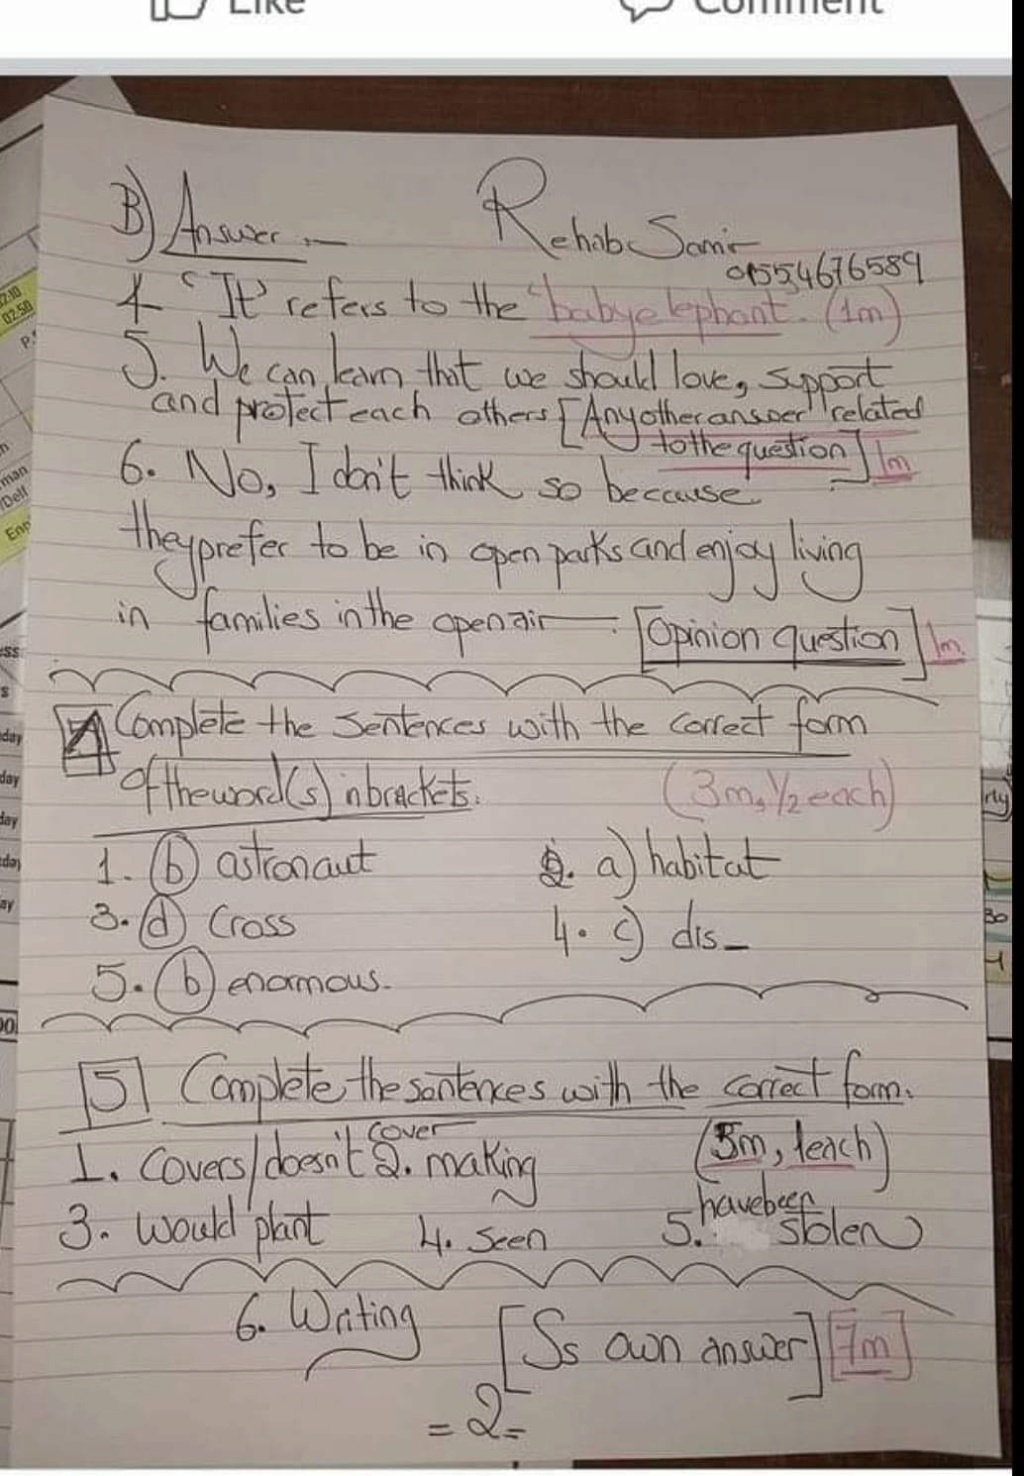 Like Comment
B) Answer :- Rehab Samir
01554676589
4. "It" refers to the "baby elephant. (1m)
5. We can learn that we should love, support
and protect each others [Any other answer related
to the question] 1m
6. No, I don't think so because
they prefer to be in open parks and enjoy living
in families in the open air [Opinion question] 1m
4 Complete the sentences with the correct form
of the word(s) in brackets. (3m, 1/2 each)
1. (b) astronaut 2. a) habitat
3. (d) Cross 4. c) dis_
5. (b) enormous.
5 Complete the sentences with the correct form.
1. Covers/doesn't cover 2. making (5m, 1each)
3. would plant 4. seen 5. have been stolen
6. Writing [Ss own answer] [7m]
=2=